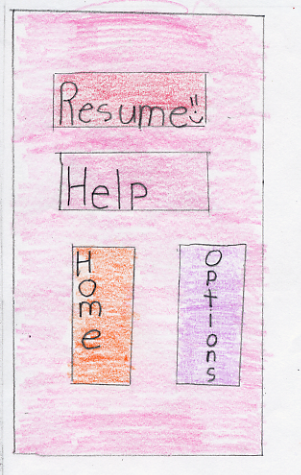 Resume
Help
Home
Options